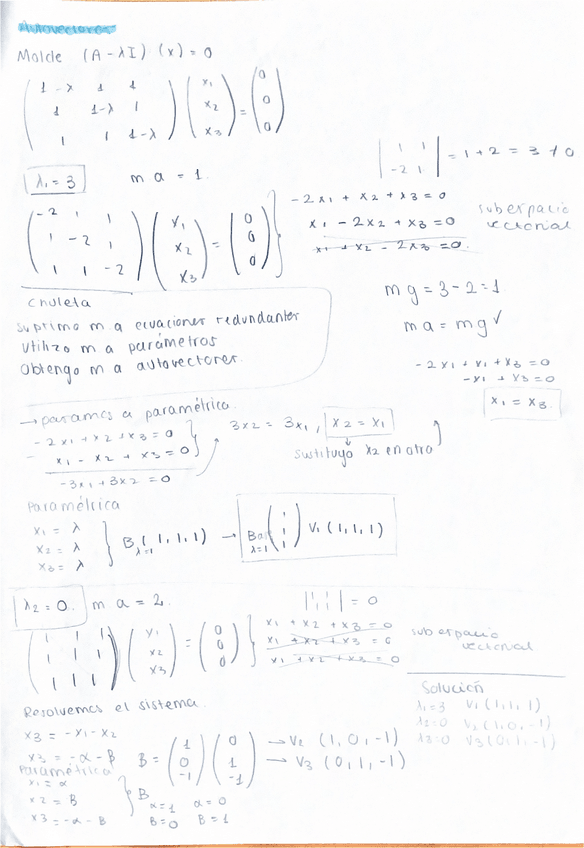 Autovectores
Molde (A - λI) (x) = 0
( 1-λ 1 1 ) ( x1 ) ( 0 )
( 1 1-λ 1 ) ( x2 ) = ( 0 )
( 1 1 1-λ ) ( x3 ) ( 0 )
| 1 1 |
| -2 1 | = 1 + 2 = 3 ≠ 0
λ1 = 3 m a = 1.
( -2 1 1 ) ( x1 ) ( 0 ) -2x1 + x2 + x3 = 0
( 1 -2 1 ) ( x2 ) = ( 0 ) x1 - 2x2 + x3 = 0
( 1 1 -2 ) ( x3 ) ( 0 ) x1 + x2 - 2x3 = 0.
subespacio
vectorial
chuleta
suprimo m.a ecuaciones redundantes
utilizo m a parámetros
Obtengo m a autovectores.
m g = 3 - 2 = 1.
m a = m g ✓
-2x1 + x1 + x3 = 0
-x1 + x3 = 0
x1 = x3.
→ pasamos a paramétrica.
-2x1 + x2 + x3 = 0
x1 - x2 + x3 = 0
-3x1 + 3x2 = 0
3x2 = 3x1, x2 = x1
sustituyo x2 en otra
Paramétrica
x1 = λ
x2 = λ
x3 = λ
B λ=1 (1, 1, 1) → Ba λ=1 ( 1 1 1 ) V1 (1, 1, 1)
λ2 = 0. m a = 2.
| 1 1 |
| 1 1 | = 0
( 1 1 1 ) ( x1 ) ( 0 ) x1 + x2 + x3 = 0
( 1 1 1 ) ( x2 ) = ( 0 ) x1 + x2 + x3 = 0
( 1 1 1 ) ( x3 ) ( 0 ) x1 + x2 + x3 = 0
subespacio
vectorial
Resolvemos el sistema.
x3 = -x1 - x2
x3 = -α - β
B = ( 1 0 -1 ) ( 0 1 -1 )
→ V2 (1, 0, -1)
→ V3 (0, 1, -1)
Paramétrica
x1 = α
x2 = β
x3 = -α - β
B
α=1 α=0
β=0 β=1
Solución
λ1=3 V1 (1, 1, 1)
λ2=0 V2 (1, 0, -1)
λ3=0 V3 (0, 1, -1)